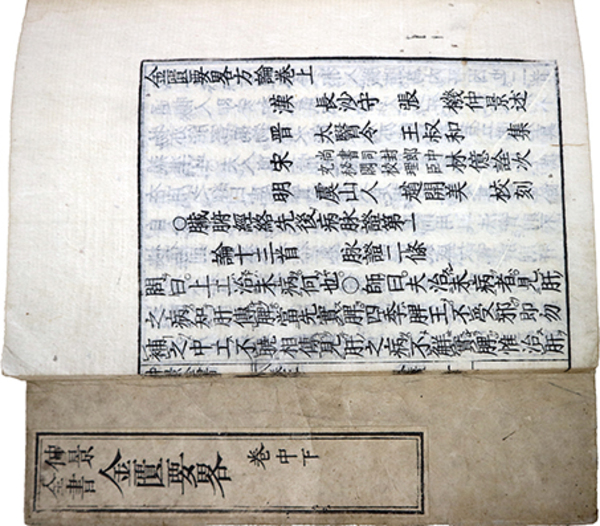 金匱要畧方論卷上
漢 長沙守 張 機仲景述
晋 太醫令 王叔和 集
宋 尚書司封郎中
充秘閣校理臣 林億詮次
明 虞山人 趙開美 校刻
○臟腑經絡先後病脉證第一
論十三首 脉證二條
問曰上工治未病何也○師曰夫治未病者見肝
之病知肝傳脾當先實脾四季脾王不受邪即勿
補之中工不曉相傳見肝之病不解實脾惟治肝
仲景
全書
金匱要畧
卷中下